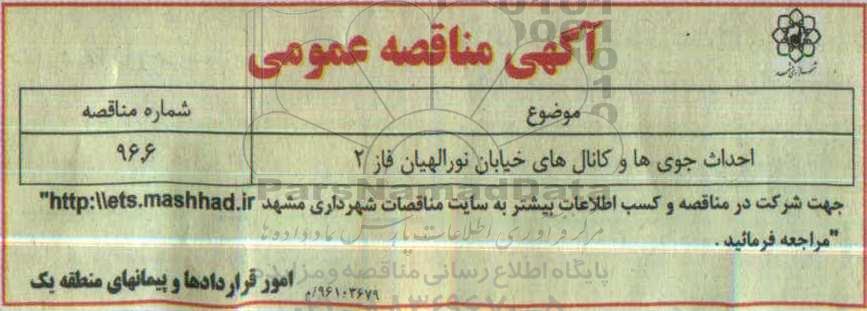 آگهی مناقصه عمومی
موضوع
شماره مناقصه
احداث جوی ها و کانال های خیابان نورالهیان فاز ۲
۹۶٫۶
جهت شرکت در مناقصه و کسب اطلاعات بیشتر به سایت مناقصات شهرداری مشهد http:\\ets.mashhad.ir"
"مراجعه فرمائید .
امور قراردادها و پیمانهای منطقه یک
۹۶۱۰۳۶۷۹/م
ParsNamadData
مرکز فرآوری اطلاعات پارس نماد داده ها
پایگاه اطلاع رسانی مناقصه و مزایده